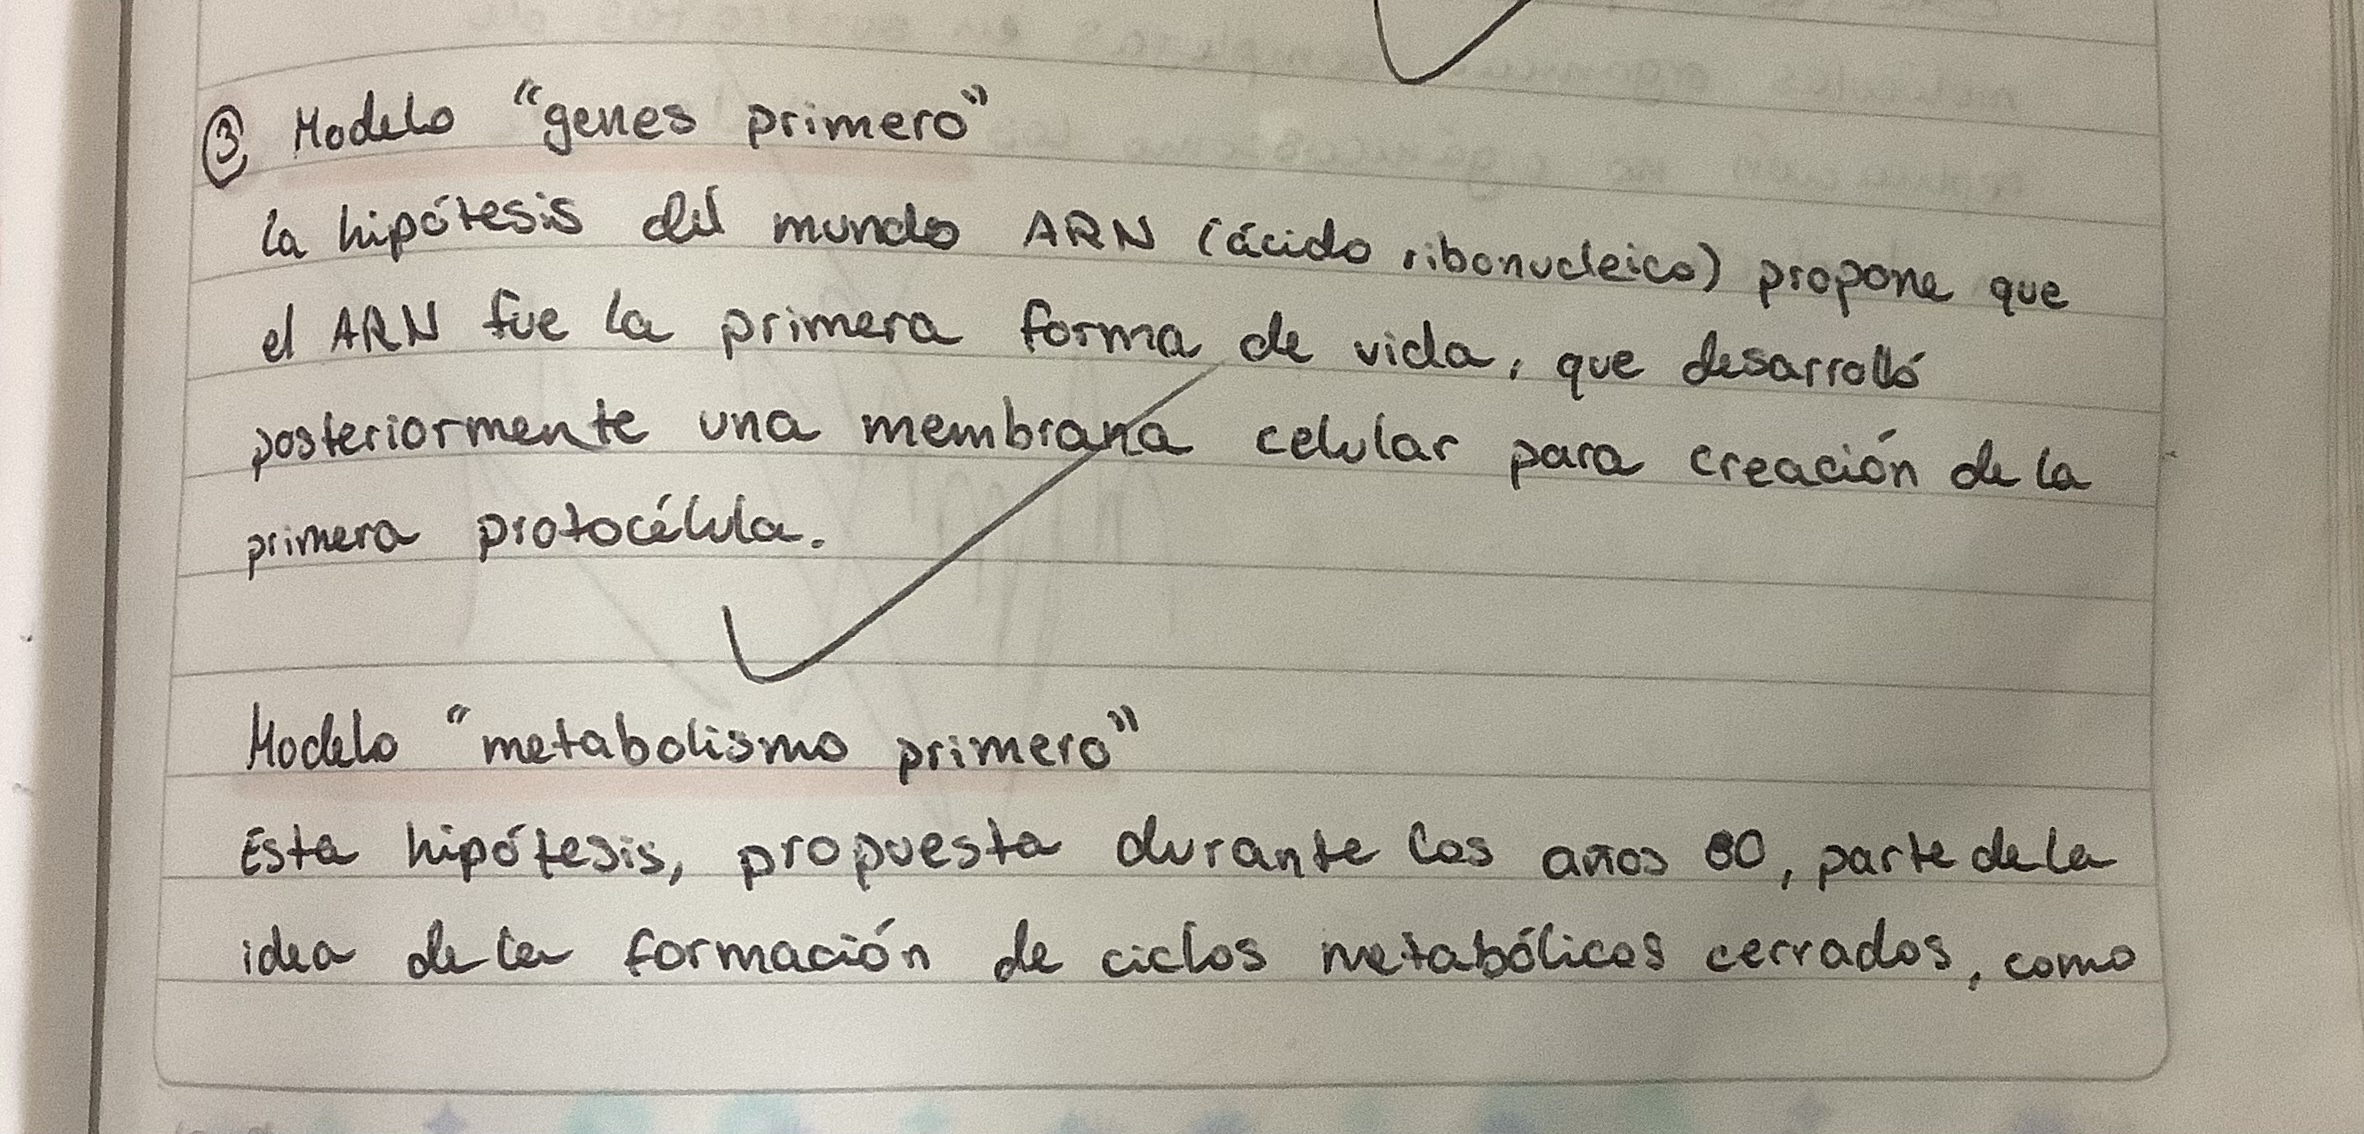 ③ Modelo "genes primero"
la hipótesis del mundo ARN (ácido ribonucleico) propone que
el ARN fue la primera forma de vida, que desarrolló
posteriormente una membrana celular para creación de la
primera protocélula.
Modelo "metabolismo primero"
Esta hipótesis, propuesta durante los años 80, parte de la
idea de la formación de ciclos metabólicos cerrados, como